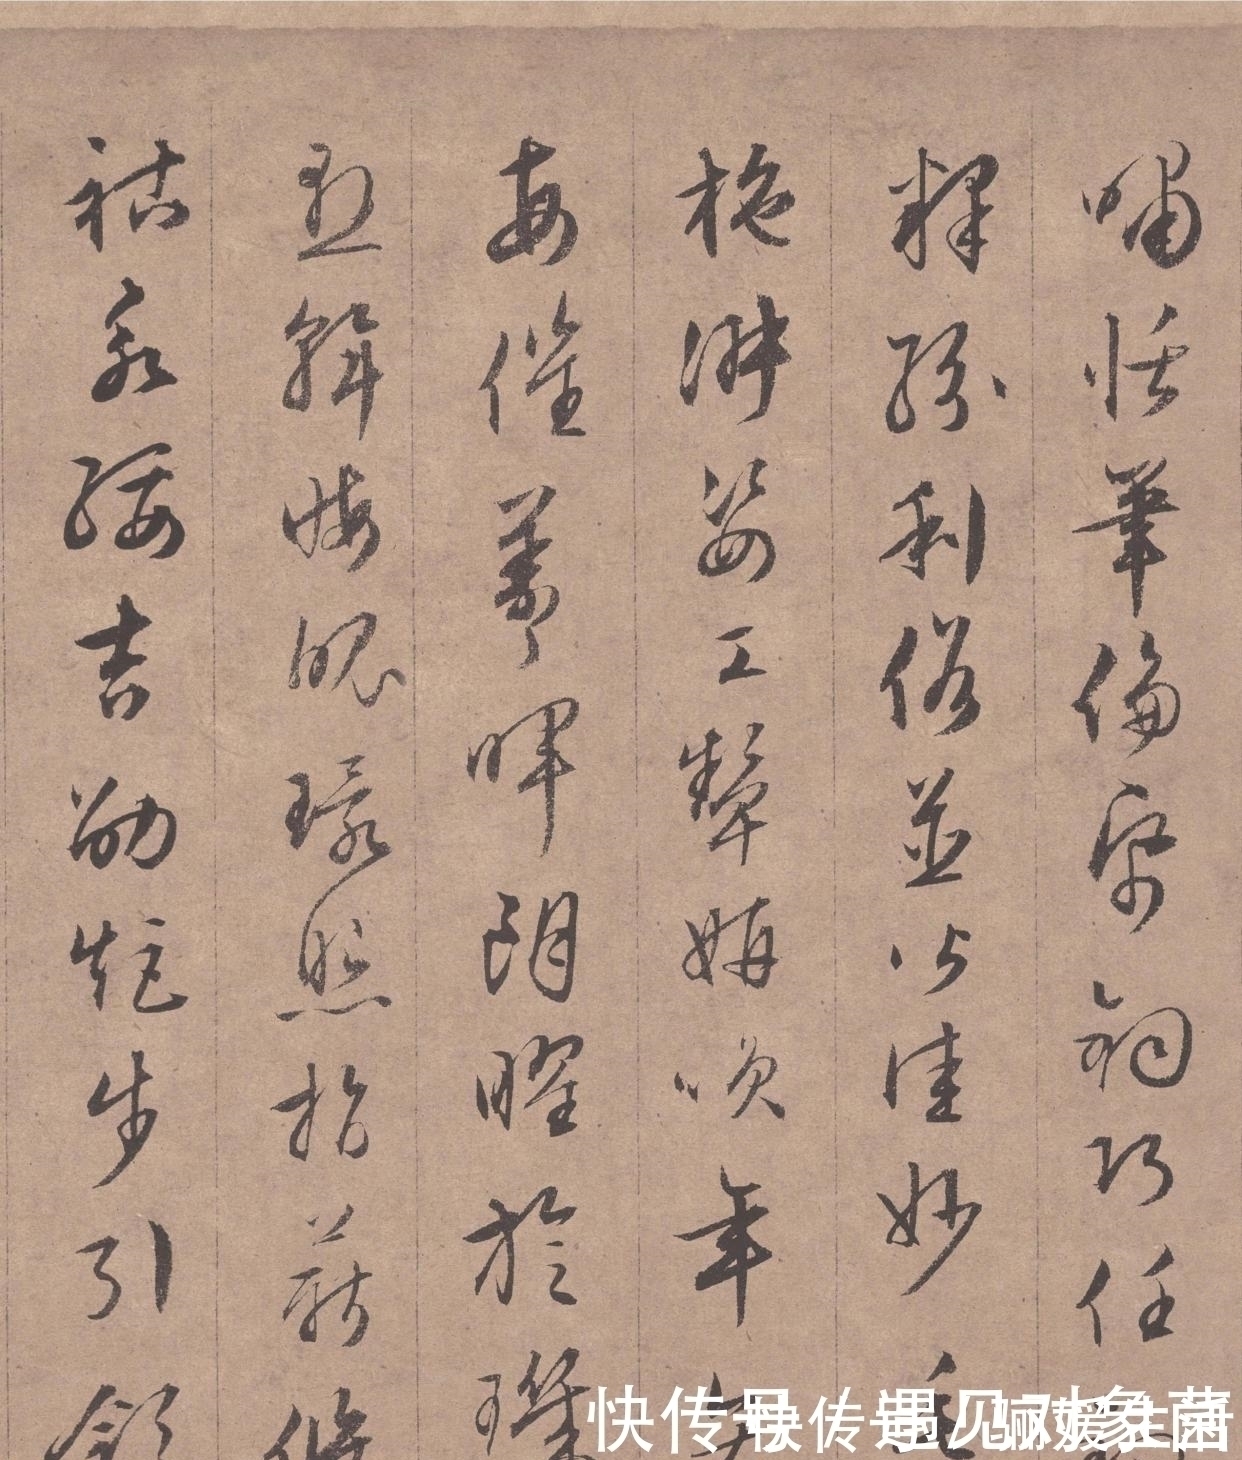 嘯恬筆倫帋鈞巧任釣
釋紛利俗並皆佳妙毛
施淑姿工顰妍咲年矢
每催羲暉朗曜旋璣
懸斡晦魄環照指薪修
祜永綏吉劭矩步引領
快传号
快传号